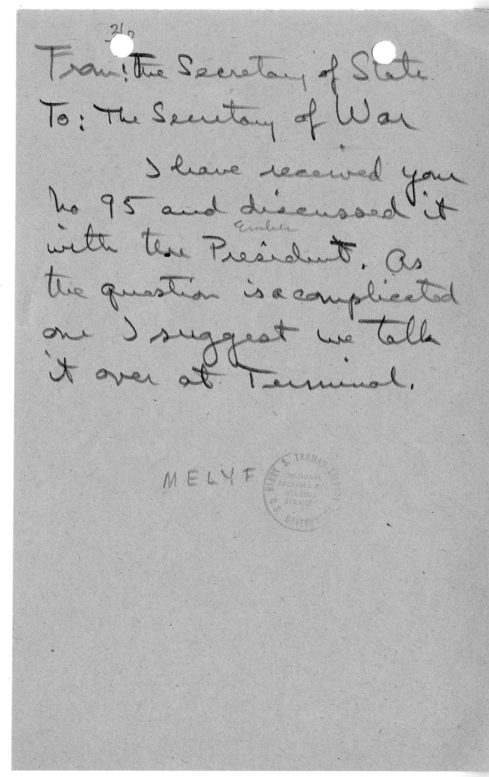 36
From: The Secretary of State
To: The Secretary of War
I have received your
No 95 and discussed it
Ember
with the President. As
the question is a complicated
one I suggest we talk
it over at Terminal.
MELYF
HARRY S. TRUMAN LIBRARY
NATIONAL
ARCHIVES &
RECORDS
SERVICE
U.S. GOVERNMENT